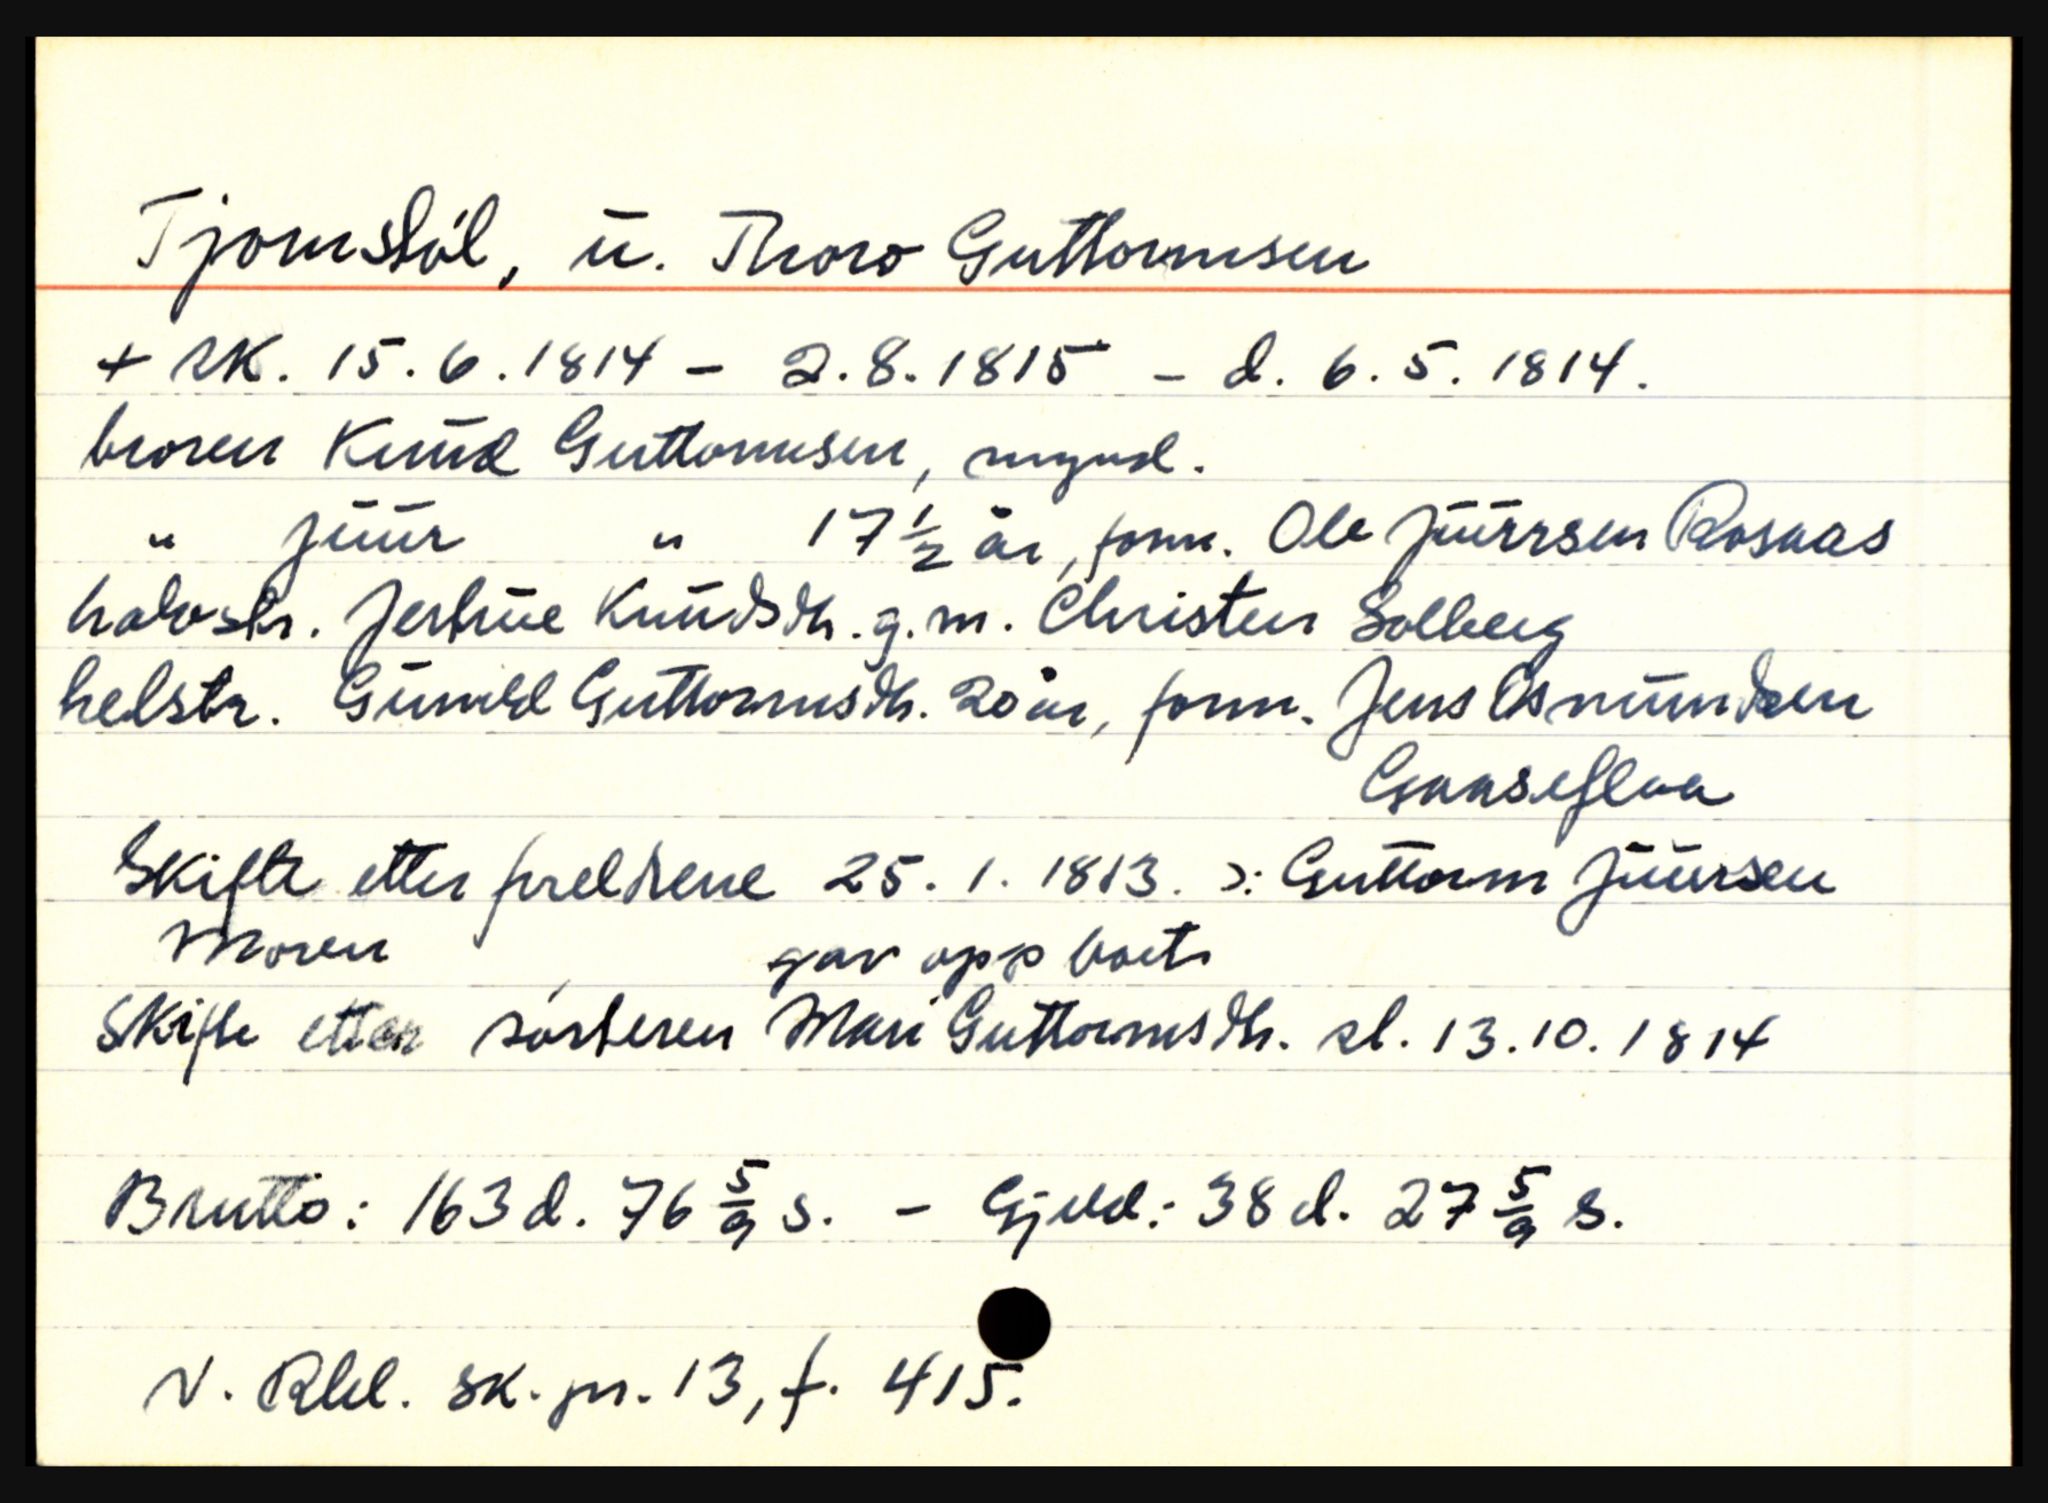 Tjomstöl, u. Thoro Guttormsen
+ sk. 15.6.1814 - 2.8.1815 - d. 6.5.1814.
broren Knud Guttormsen, mynd.
" Juur " 17 1/2 år, form. Ole Juursen Rosaas
halvstr. Jertrue Knudsdtr. g. m. Christen Solberg
helstr. Gunild Guttormsdtr. 20 år, form. Jens Asmundsen
Gaaseflaa
Skifte etter foreldrene 25.1.1813. ɔ: Guttorm Juursen
Moren gav opp boets
Skifte etter sösteren Mari Guttormsdtr. sl. 13.10.1814
Brutto: 163 d. 76 5/9 s. - Gjeld: 38 d. 27 5/9 s.
N. Rbl. sk. pr. 13, f. 415.